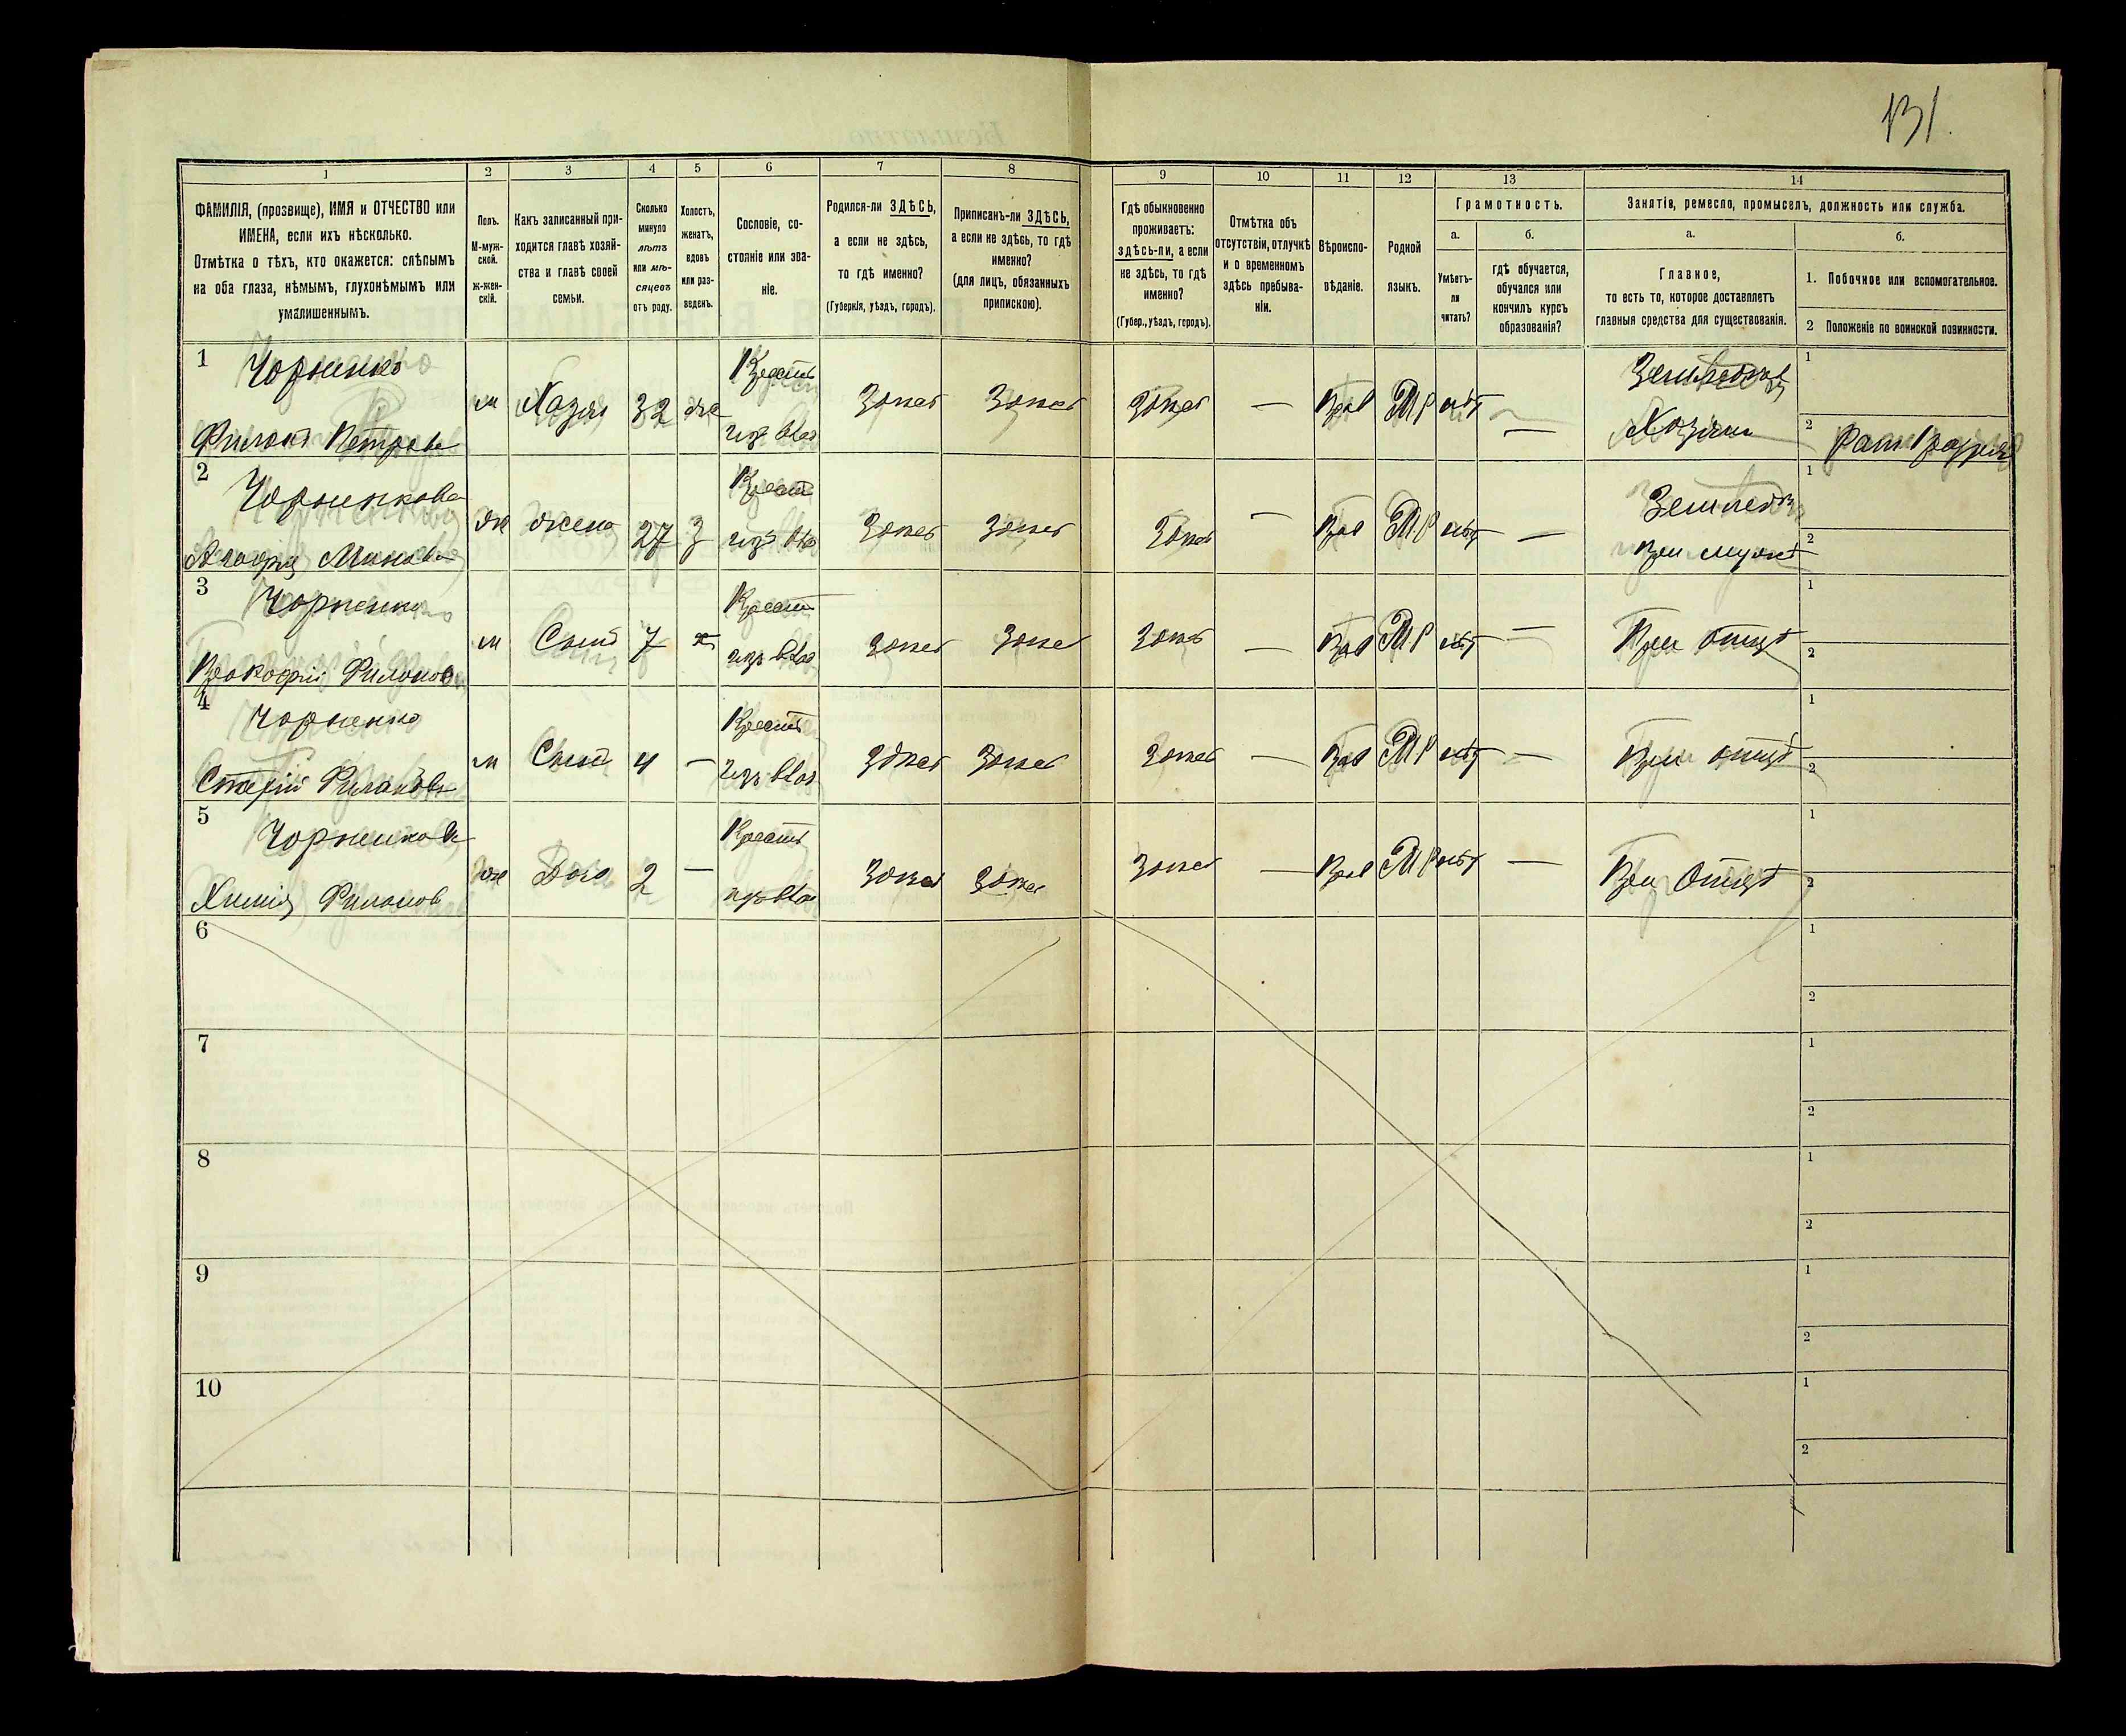 131.
1 2 3 4 5 6 7 8 9 10 11 12 13 14
ФАМИЛІЯ, (прозвище), ИМЯ и ОТЧЕСТВО или
ИМЕНА, если ихъ нѣсколько.
Отмѣтка о тѣхъ, кто окажется: слѣпымъ
на оба глаза, нѣмымъ, глухонѣмымъ или
умалишеннымъ.
Полъ.
М-муж-
ской.
ж-жен-
скій.
Какъ записанный при-
ходится главѣ хозяй-
ства и главѣ своей
семьи.
Сколько
минуло
лѣтъ
или мѣ-
сяцевъ
отъ роду.
Холостъ,
женатъ,
вдовъ
или раз-
веденъ.
Сословіе, со-
стояніе или зва-
ніе.
Родился-ли ЗДѢСЬ,
а если не здѣсь,
то гдѣ именно?
(Губернія, уѣздъ, городъ).
Приписанъ-ли ЗДѢСЬ,
а если не здѣсь, то гдѣ
именно?
(для лицъ, обязанныхъ
припискою).
Гдѣ обыкновенно
проживаетъ:
здѣсь-ли, а если
не здѣсь, то гдѣ
именно?
(Губер., уѣздъ, городъ).
Отмѣтка объ
отсутствіи, отлучкѣ
и о временномъ
здѣсь пребыва-
ніи.
Вѣроиспо-
вѣданіе.
Родной
языкъ.
Грамотность.
а.
Умѣетъ-
ли
читать?
б.
гдѣ обучается,
обучался или
кончилъ курсъ
образованія?
Занятія, ремесло, промыселъ, должность или служба.
а.
Главное,
то есть то, которое доставляетъ
главныя средства для существованія.
б.
1. Побочное или вспомогательное.
2 Положеніе по воинской повинности.
1 Чорненко
Филонъ Петровъ
м
32
Крест
изъ влад
здѣсь здѣсь здѣсь — Прав М Р нѣт —
Хозяинъ
1
2
2 Чорненкова
ж жена 27 З
Крест
изъ вла
здѣсь здѣсь здѣсь — Прав М Р нѣт —
при мужѣ
1
2
3 Чорненко
Прокофій Филонов
м Сынъ 7
Крест
изъ влад
здѣсь здѣсь здѣсь — Прав М Р нѣт —
При отцѣ
1
2
4 Чорненко
м Сынъ 4 —
Крест
изъ влад
здѣсь здѣсь здѣсь — Прав М Р нѣт —
При отцѣ
1
2
5 Чорненкова
Филонов
ж Дочь 2 —
Крест
изъ влад
здѣсь здѣсь здѣсь — Прав М Р нѣт —
При Отцѣ
1
2
6
1
2
7
1
2
8
1
2
9
1
2
10
1
2